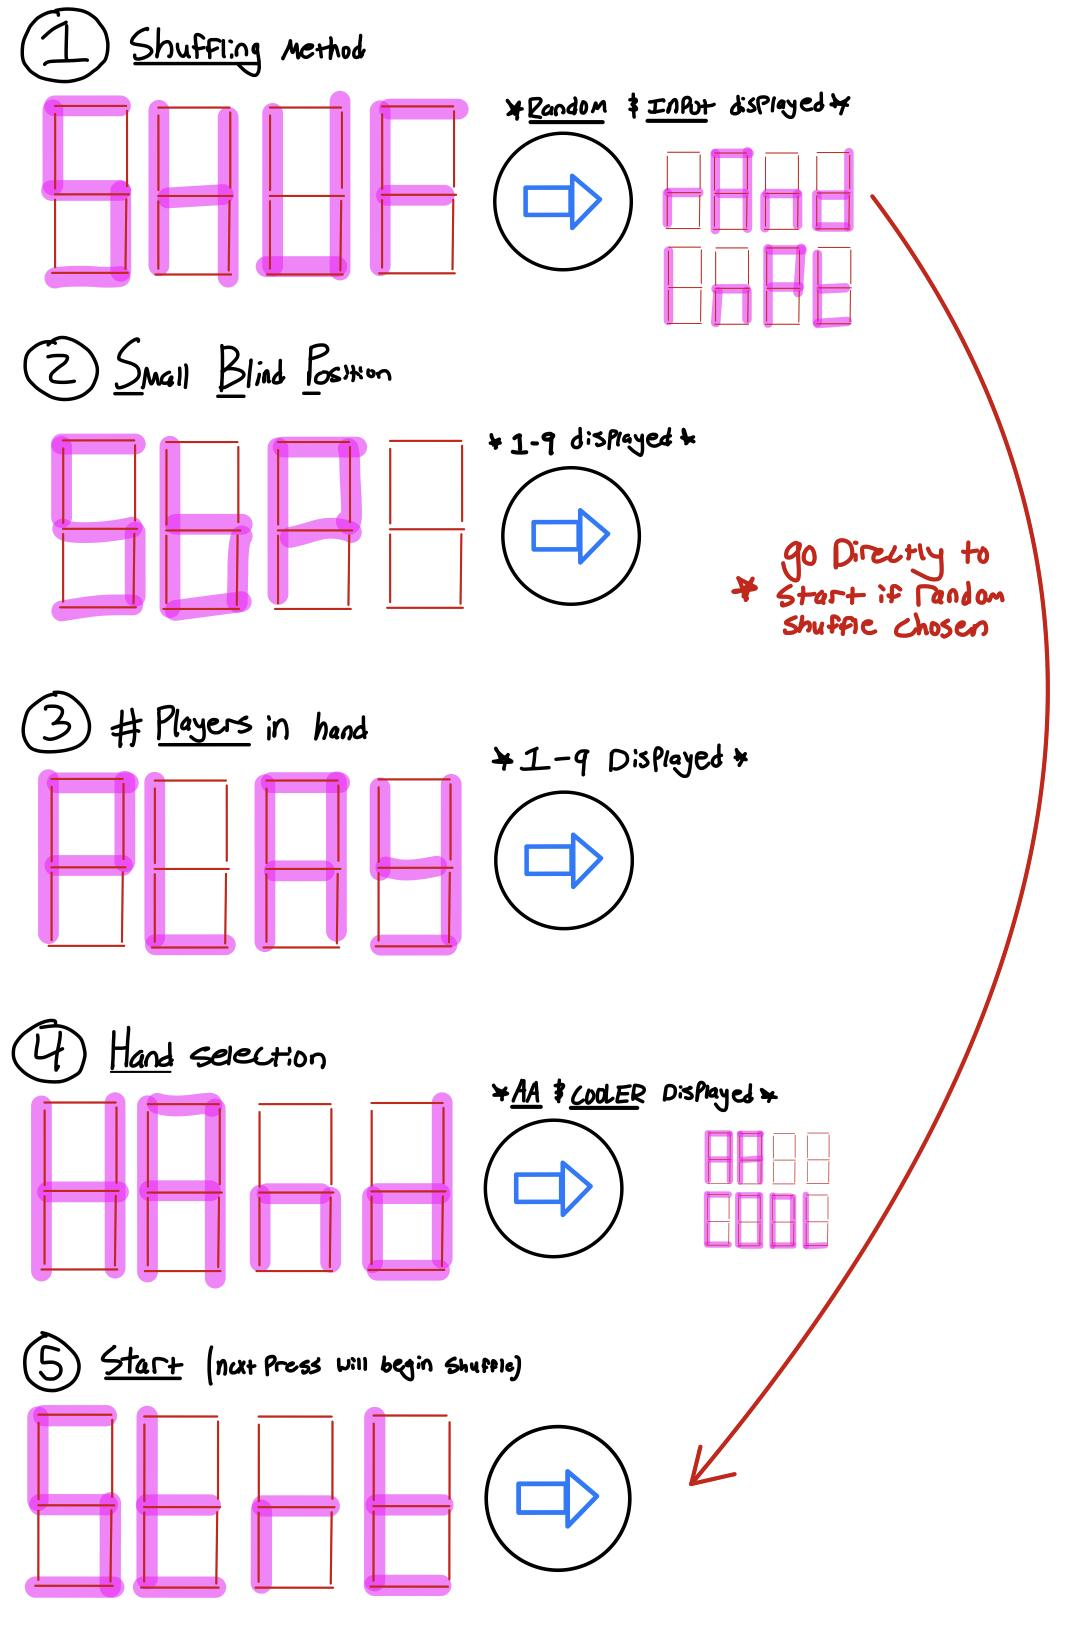 1 Shuffling Method
SHUF
* Random & INPUT displayed *
rAnd
InPt
2 Small Blind Position
SbP
* 1-9 displayed *
go Directly to
* Start if random
shuffle chosen
3 # Players in hand
PLAY
* 1-9 Displayed *
4 Hand selection
HAnd
* AA & COOLER Displayed *
AA
COOL
5 Start (next press will begin shuffle)
Strt